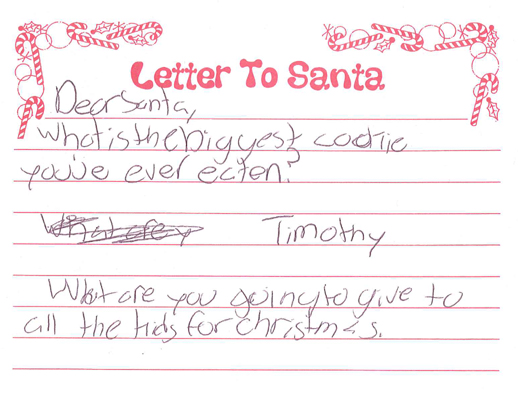 Letter To Santa
Dear Santa,
What is the biggest cookie
you've ever eaten?
What are y Timothy
What are you going to give to
all the kids for christmas.